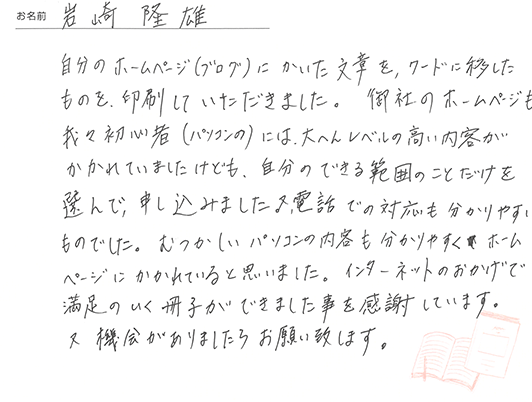 お名前 岩崎 隆雄
自分のホームページ(ブログ)にかいた文章を,ワードに移した
ものを、印刷していただきました。 御社のホームページも
我々初心者(パソコンの)には、大へんレベルの高い内容が
かかれていましたけども、自分のできる範囲のことだけを
選んで,申し込みました。又,電話での対応も分かりやすい
ものでした。むつかしいパソコンの内容も分かりやすくホーム
ページにかかれていると思いました。インターネットのおかげで
満足のいく冊子ができました事を感謝しています。
又 機会がありましたらお願い致します。